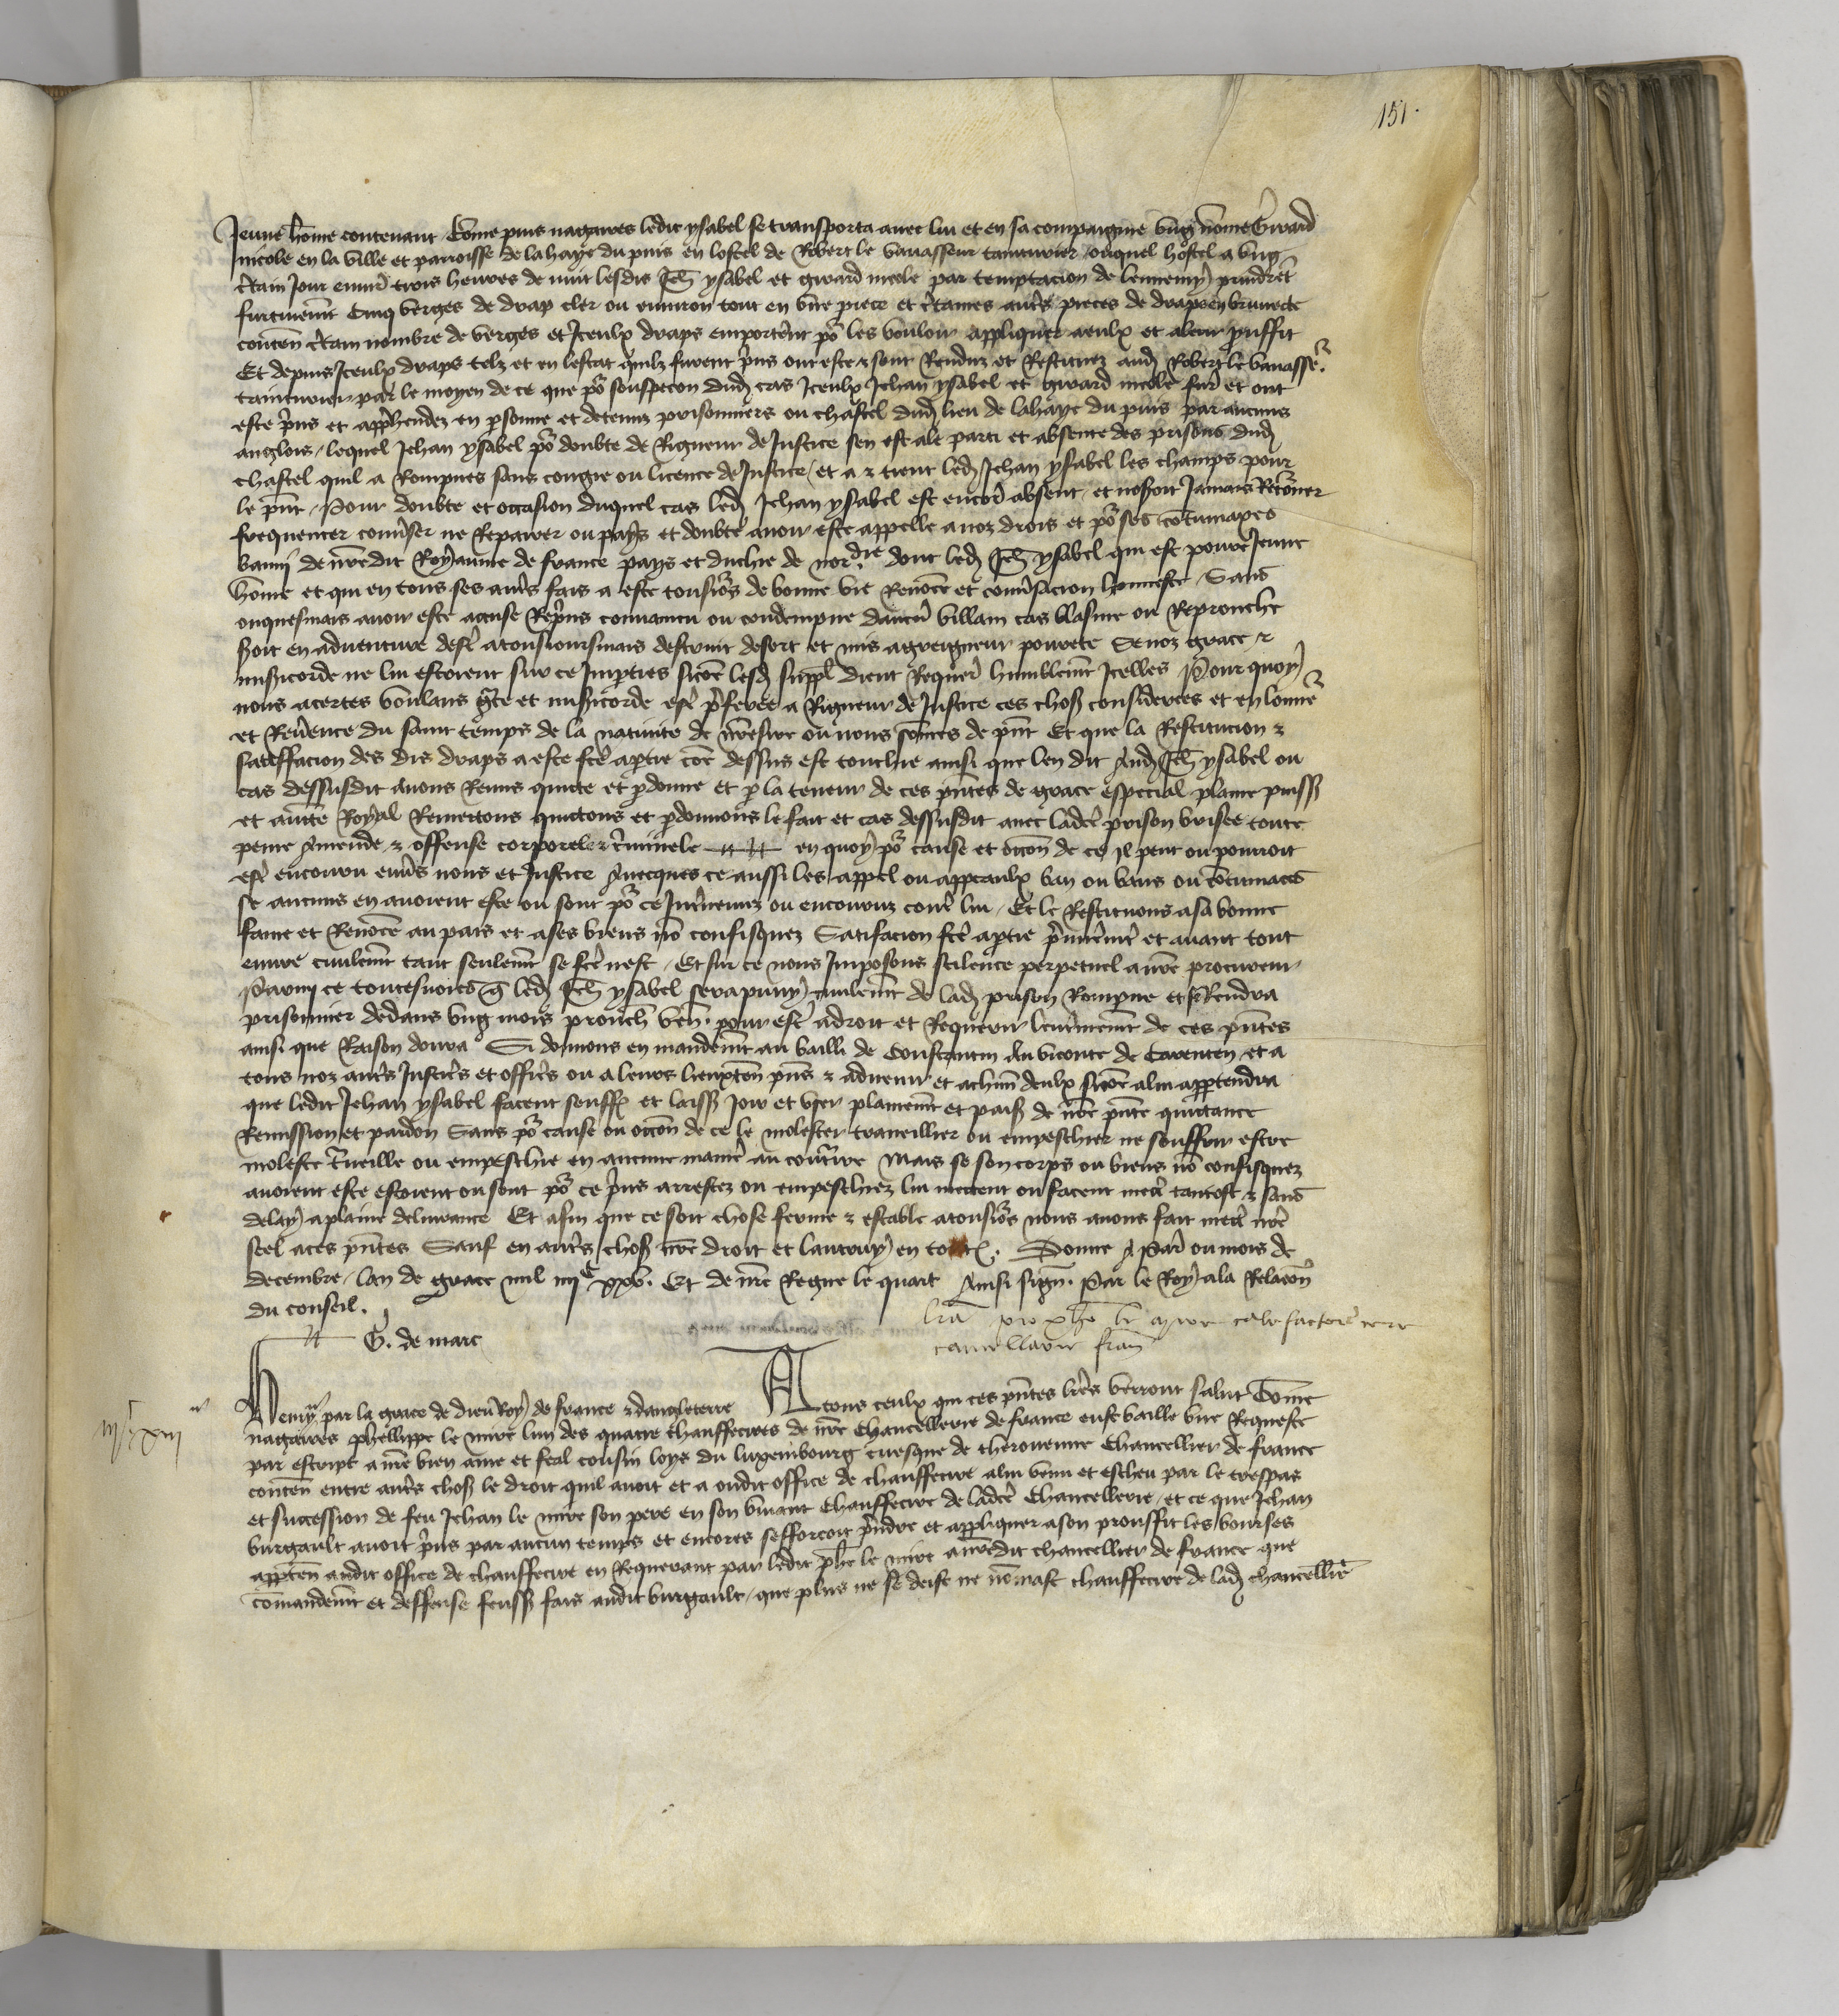 151.
Jeune hōme contenant Cōme puis nagaires ledit ysabel se transporta avec lui et en sa compaignie ung nōme Girard
nicole en la ville et parroisse de la haye du puis en lostel de Robert le vavasseur tainturier ouquel hostel a ung
c̄tain jour environ trois heures de nuit lesdis Jeh̄ ysabel et girard nicole par temptacion de lennemy prindrēt
furtivemēt cinq verges de drap cler ou environ tout en une piece et c̄taines aut̄s pieces de draps en brunette
contenā c̄tain nombre de verges et Iceulx draps emportēnt po͛ les vouloir appliquer a eulx et a leur prouffit
Et depuis Iceulx draps telz et en lestat quilz furent p̄ns ont este et sont Renduz et Restituez aud͛ Robert le vavasse͛
tainturier par le moyen de ce que po͛ souspecon dud͛ cas Iceulx Jehan ysabel et girard nicole fur̄ et ont
este p̄ns et app̄hendez en p̄sonne et detenuz prisonniers ou chastel dud͛ lieu de la haye du puis par aucuns
anglois / lequel Jehan ysabel po͛ doubte de Rigueur de Justice sen est ale parti et absente des prisons dud͛
chastel quil a Rompues sans congie ou licence de Justice / et a et tient led͛ Jehan ysabel les champs pour
le p̄nt / Pour doubte et occasion duquel cas led͛ Jehan ysabel est encor̄ absent / et noseroit Jamais Ret̄ourner
frequenter conv̄ser ne Reparer ou pays et doubte avoir este appelle a noz drois et po͛ ses cōtumaxes
banny de n̄redit Royaume de france pays et duchie de nor.die dont led͛ Jeh̄ ysabel qui est povre jeune
hōme et qui en tous ses aut̄s fais a este tousio͛s de bonne vie Renōee et conv̄sacion honneste / Sans
onquesmais avoir este accuse Rep̄ns convaincu ou condempne daucū villain cas blasme ou Reprouche
soit en adventure dest̄ a tousioursmais destruit desert et mis a greigneur povrete Se noz grace et
mis̄icorde ne lui estoient sur ce Imp̄ties sicōe lesd͛ suppl̄ dient Requer̄ humblemēt Icelles Pour quoy
nous acertes voulans ḡce et mis̄icorde est̄ p̄feree a Rigueur de Justice ces chos̄ considerees et en lonne͛
et Rev̄ence du saint temps de la nativite de n̄resire ou nous sōmes de p̄nt Et que la Restitucion et
satiffacion des dis draps a este fc̄e a p̄tie cōe dessus est touchie ainsi que len dit Aud͛ Jeh̄ ysabel ou
cas dessusdit avons Remis quicte et p̄donne et p̄ la teneur de ces p̄ntes de grace especial plaine puiss̄
et auc̄te Royal Remettons quictons et p̄donnons le fait et cas dessusdit avec ladc̄e prison brisee toute
peine Amende et offense corporele et c̄minele en quoy po͛ cause et occōn de ce Il peut ou pourroit
est̄ encouru env̄s nous et Justice Avecques ce aussi les appel ou appeaulx ban ou bans ou cōtumaces
se aucuns en avoient este ou sont po͛ ce Int̄venuz ou encouruz cont̄ lui / Et le Restituons a sa bonne
fame et Renōee au pais et a ses biens nō confisquez Satifacion fc̄e a p̄tie p̄mier̄mēt et avant tout
euvre civilemēt tant seulemēt se fc̄e nest / Et sur ce nous Imposons scilence perpetuel a n̄re procureur
Parmy ce toutesvoies q̄ led͛ Jeh̄ ysabel sera puny civilemēt de lad͛ prison Rompue et se Rendra
prisonnier dedans ung mois prouch̄ ven̄. pour est̄ a droit et Requerir lent̄inemēt de ces p̄ntes
ainsi que Raison donra Si donnons en mandemēt au bailli de Constantin Au viconte de Carenten et a
tous noz aut̄s Justic̄s et offic̄s ou a leurs lieuxten̄ p̄ns et advenir et a chūn deulx sicōe a lui app̄tendra
que ledit Jehan ysabel facent seuffr̄ et laiss̄ Joir et user plainemēt et paisib̄ de n̄re p̄nte quittance
Remission et pardon Sans po͛ cause ou occōn de ce le molester traveillier ou empeschier ne souffrir estre
moleste t̄veille ou empeschie en aucune manie͛ au cont̄ire Mais se son corps ou biens nō confisquez
avoient este estoient ou sont po͛ ce p̄ns arrestez ou empeschiez lui mettent ou facent mect̄ tantost et sans
delay a plaine delivrance Et afin que ce soit chose ferme et estable a tousio͛s nous avons fait mect̄ n̄re
seel a ces p̄ntes Sauf en aut̄s chos̄ n̄re droit et lautruy en toutes. Donne A Par̄ ou mois de
decembre / lan de grace mil iiijc xxv. Et de n̄re Regne le quart Ainsi signē. Par le Roy a la Relacōn
du conseil.
G. de marc
lrā pro pho le mire calefactore cere
cancellarie fran̄
Henry par la grace de dieu Roy de france et dangleterre A tous ceulx qui ces p̄ntes lr̄es verront salut Cōme
nagaires phelippe le mire lun des quatre chauffecires de n̄re Chancellerie de france eust baille une Requeste
par escript a n̄re bien ame et feal cousin loys du luxembourg evesque de therouenne Chancellier de france
conten̄ entre aut̄s chos̄ le droit quil avoit et a oudit office de chauffecire a lui venu et escheu par le trespas
et succession de feu Jehan le mire son pere en son vivant chauffecire de ladc̄e Chancellerie / et ce que Jehan
burgault avoit p̄ns par aucun temps et encores sefforcoit p̄ndre et appliquer a son prouffit les bourses
app̄ten̄ audit office de chauffecire en Requerant par ledit ph̄e le mire a n̄redit chancellier de france que
cōmandemēt et deffense feuss̄ fais audit burgault / que plus ne se deist ne nōmast chauffecire de lad͛ chancell̄ie